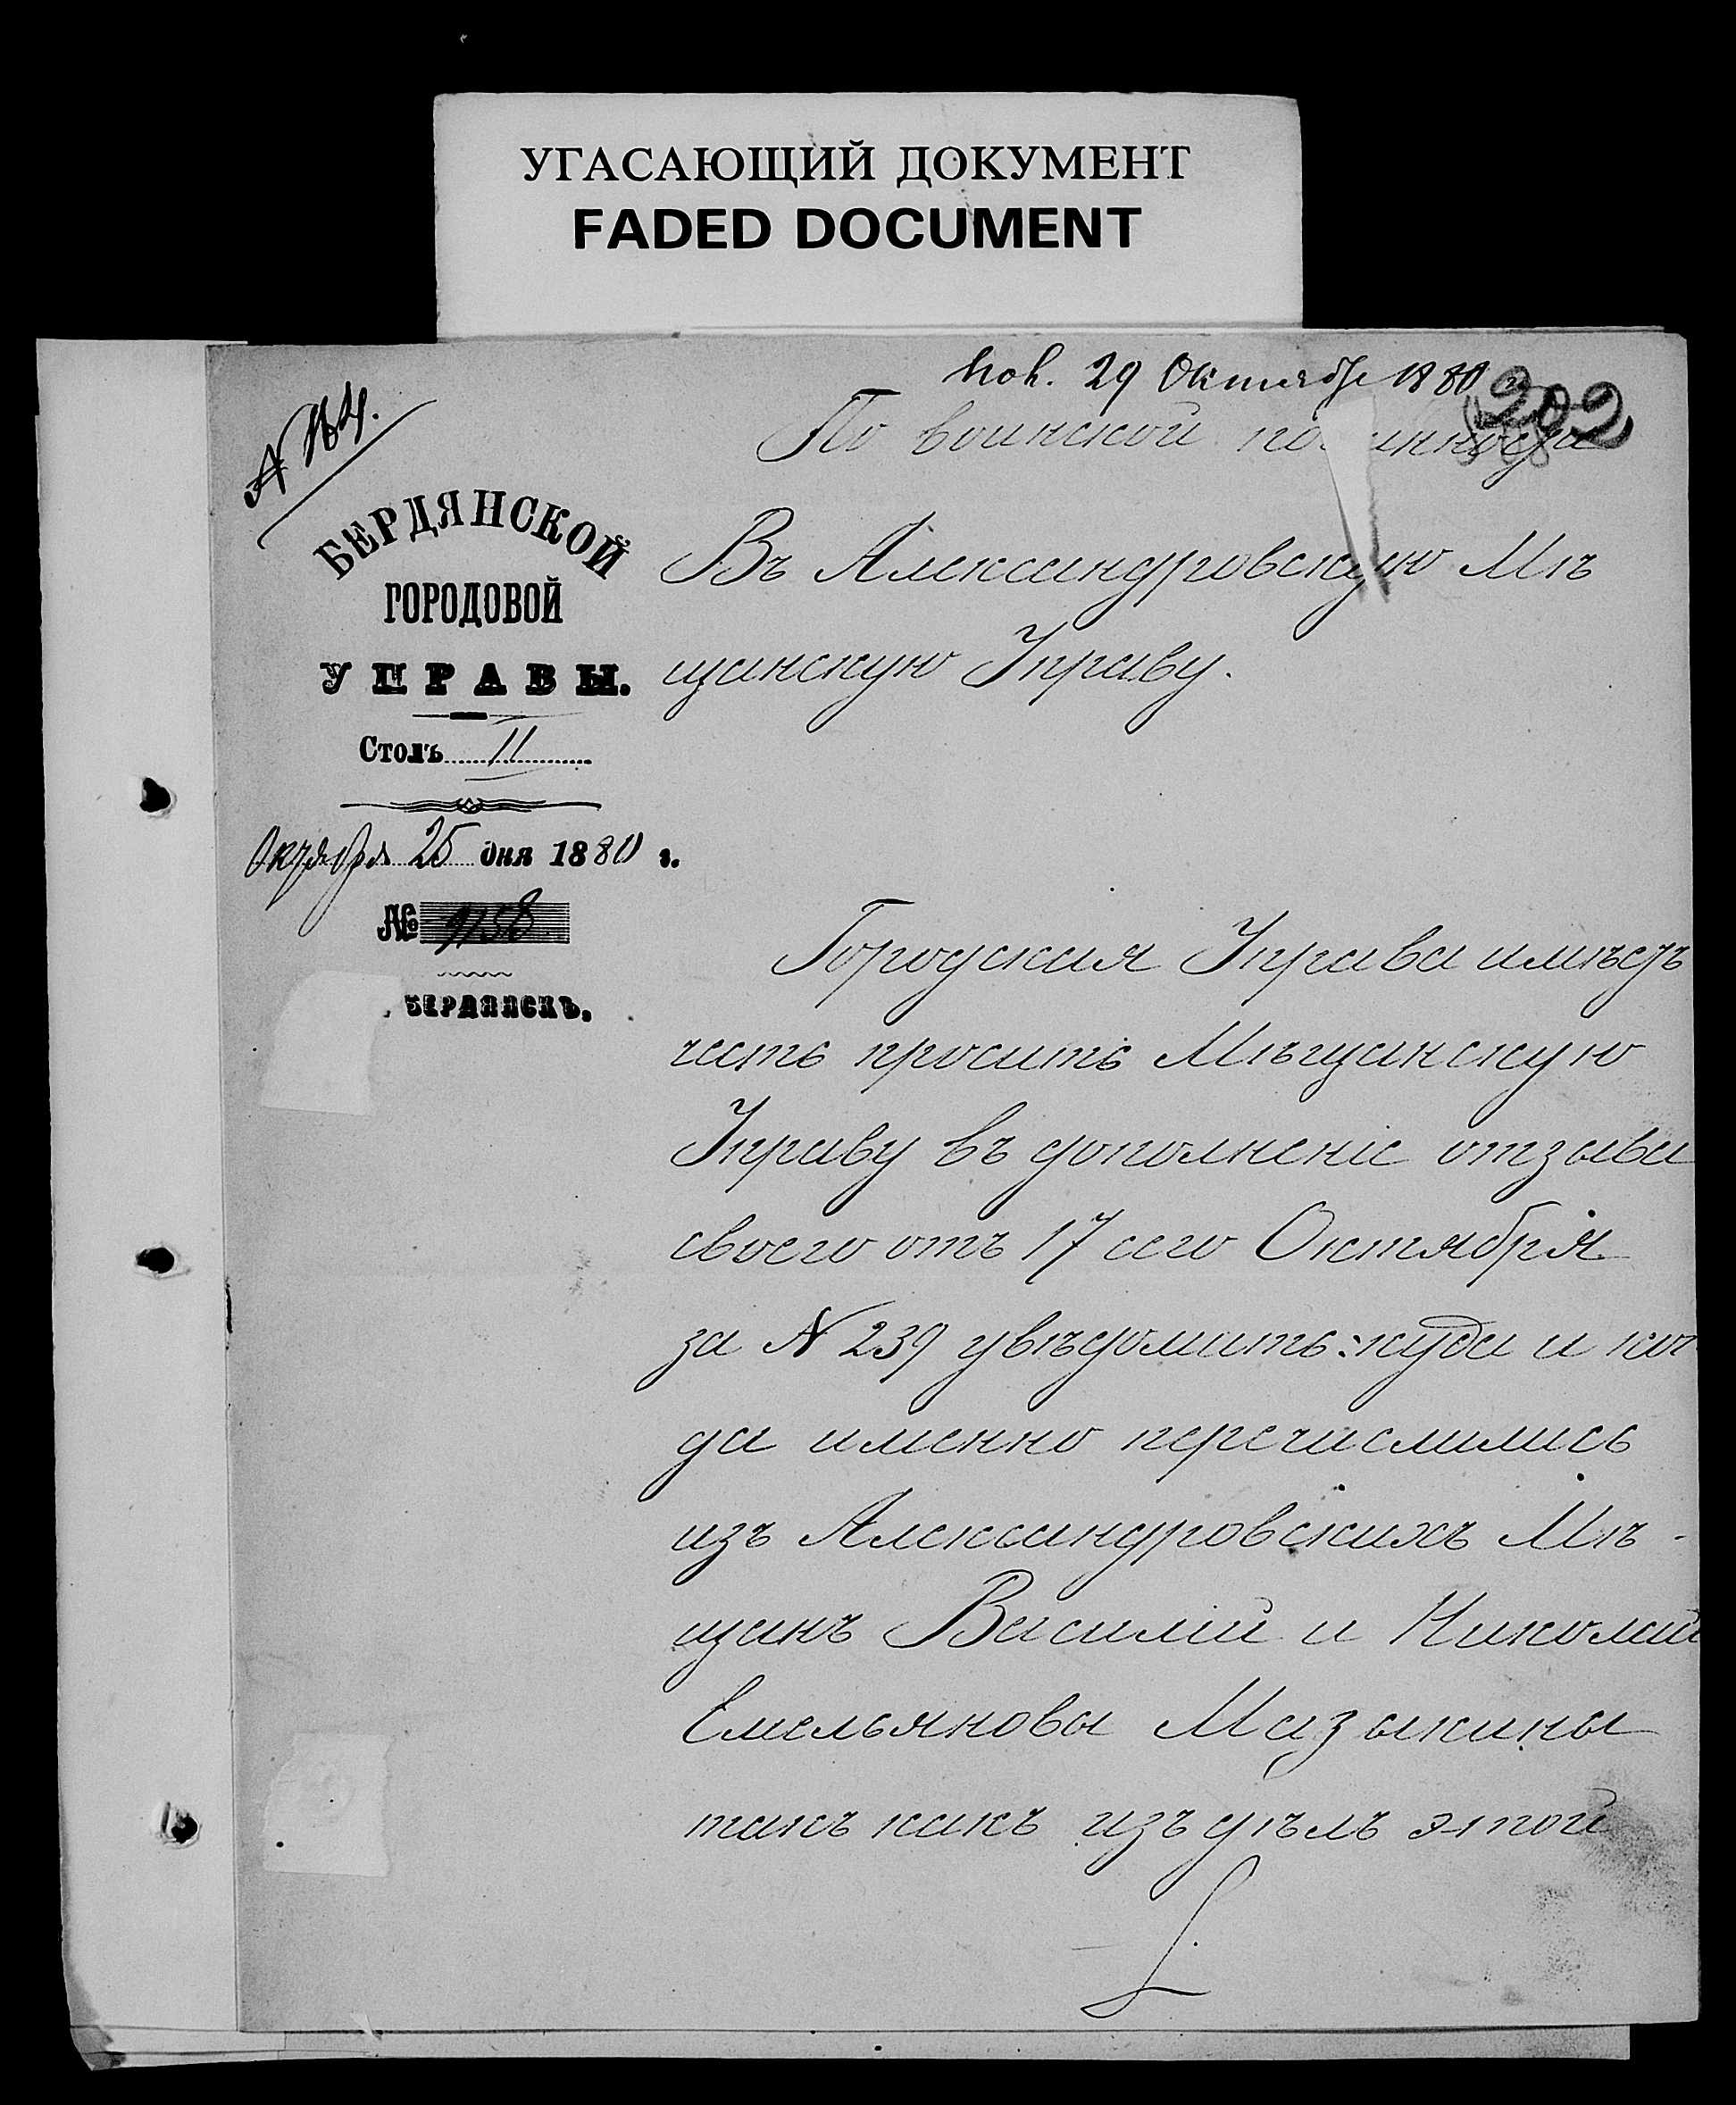 УГАСАЮЩИЙ ДОКУМЕНТ
FADED DOCUMENT
пол. 29 Октября 1880
202
По воинской повинности
БЕРДЯНСКОЙ
ГОРОДОВОЙ
УПРАВЫ.
Столъ II
Октября 25 дня 1880 г.
№ 9158
БЕРДЯНСКЪ.
Въ Александровскую Мѣ
щанскую Управу.
Городская Управа имѣетъ
честь просить Мѣщанскую
Управу въ дополненіе отзыва
своего отъ 17 сего Октября
за № 239 увѣдомить: куда и ког
да именно перечислились
изъ Александровскихъ Мѣ-
щанъ Василій и Николай
Емельяновы Мазыкины
такъ какъ изъ дѣлъ этой